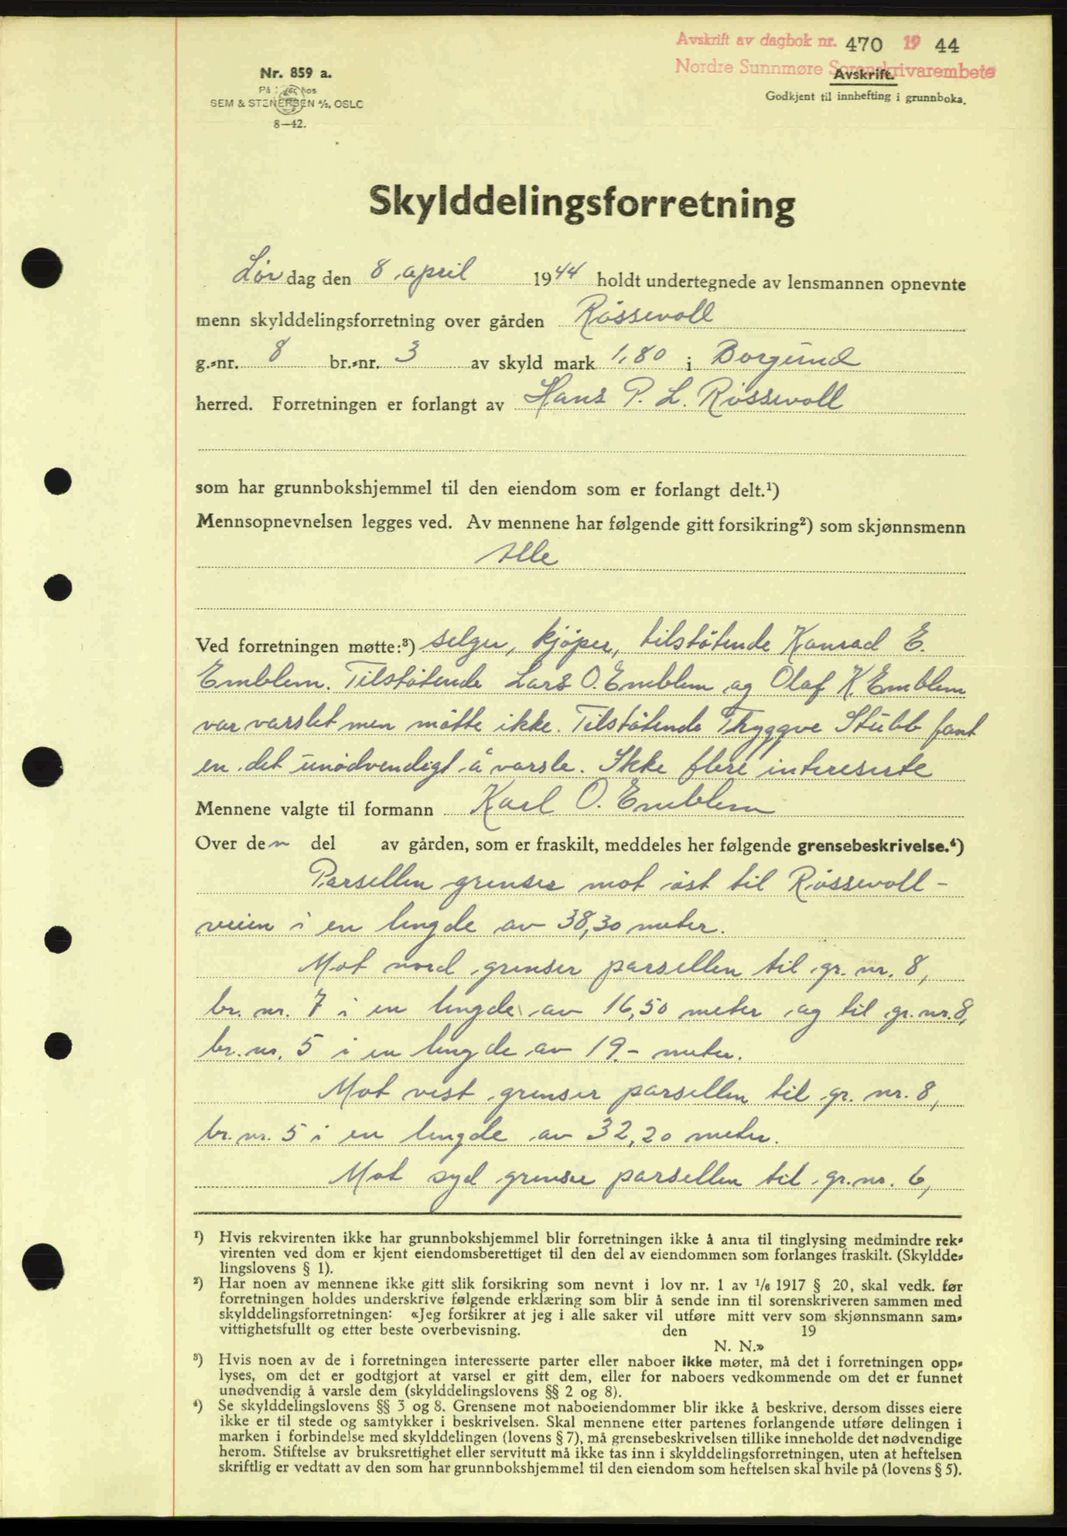 Avskrift av dagbok nr. 470 19 44
Nordre Sunnmøre Sorenskrivarembete
Avskrift.
Godkjent til innhefting i grunnboka.
Nr. 859 a.
SEM & STENERSEN A/S, OSLO
8—42.
Skylddelingsforretning
Lørdag den 8 april 1944 holdt undertegnede av lensmannen opnevnte
menn skylddelingsforretning over gården Røssevoll
g.-nr. 8 br.-nr. 3 av skyld mark 1,80 i Borgund
herred. Forretningen er forlangt av Hans P. L. Røssevoll
som har grunnbokshjemmel til den eiendom som er forlangt delt.¹)
Mennsopnevnelsen legges ved. Av mennene har følgende gitt forsikring²) som skjønnsmenn
Alle
Ved forretningen møtte:³) selger, kjøper, tilstøtende Konrad E.
Emblem. Tilstøtende Lars O. Emblem og Olaf K. Emblem
var varslet men møtte ikke. Tilstøtende Tryggve Stubb fant
en det unødvendigt å varsle. Ikke flere interesserte
Mennene valgte til formann Karl O. Emblem
Over den del av gården, som er fraskilt, meddeles her følgende grensebeskrivelse.⁴)
Parsellen grenser mot øst til Røssevoll-
veien i en lengde av 38,30 meter.
Mot nord grenser parsellen til gr. nr. 8,
br. nr. 7 i en lengde av 16,50 meter og til gr. nr. 8,
br. nr. 5 i en lengde av 19.- meter.
Mot vest grenser parsellen til gr. nr. 8,
br. nr. 5 i en lengde av 32,20 meter.
Mot syd grenser parsellen til gr. nr. 6,
¹) Hvis rekvirenten ikke har grunnbokshjemmel blir forretningen ikke å anta til tinglysing medmindre rek-
virenten ved dom er kjent eiendomsberettiget til den del av eiendommen som forlanges fraskilt. (Skyldde-
lingslovens § 1).
²) Har noen av mennene ikke gitt slik forsikring som nevnt i lov nr. 1 av 1/6 1917 § 20, skal vedk. før
forretningen holdes underskrive følgende erklæring som blir å sende inn til sorenskriveren sammen med
skylddelingsforretningen: «Jeg forsikrer at jeg i alle saker vil utføre mitt verv som skjønnsmann sam-
vittighetsfullt og etter beste overbevisning. den 19
N. N.»
³) Hvis noen av de i forretningen interesserte parter eller naboer ikke møter, må det i forretningen opp-
lyses, om det er godtgjort at varsel er gitt dem, eller for naboers vedkommende om det er funnet
unødvendig å varsle dem (skylddelingslovens §§ 2 og 8).
⁴) Se skylddelingslovens §§ 3 og 8. Grensene mot naboeiendommer blir ikke å beskrive, dersom disses eiere
ikke er til stede og samtykker i beskrivelsen. Skal mennene etter partenes forlangende utføre delingen i
marken i forbindelse med skylddelingen (lovens § 7), må grensebeskrivelsen tillike inneholde det nødvendige
herom. Stiftelse av bruksrettighet eller servitutt må ikke tas inn i skylddelingsforretningen, uten at heftelsen
skriftlig er vedtatt av den som har grunnbokshjemmel til den eiendom som heftelsen skal hvile på (lovens § 5).